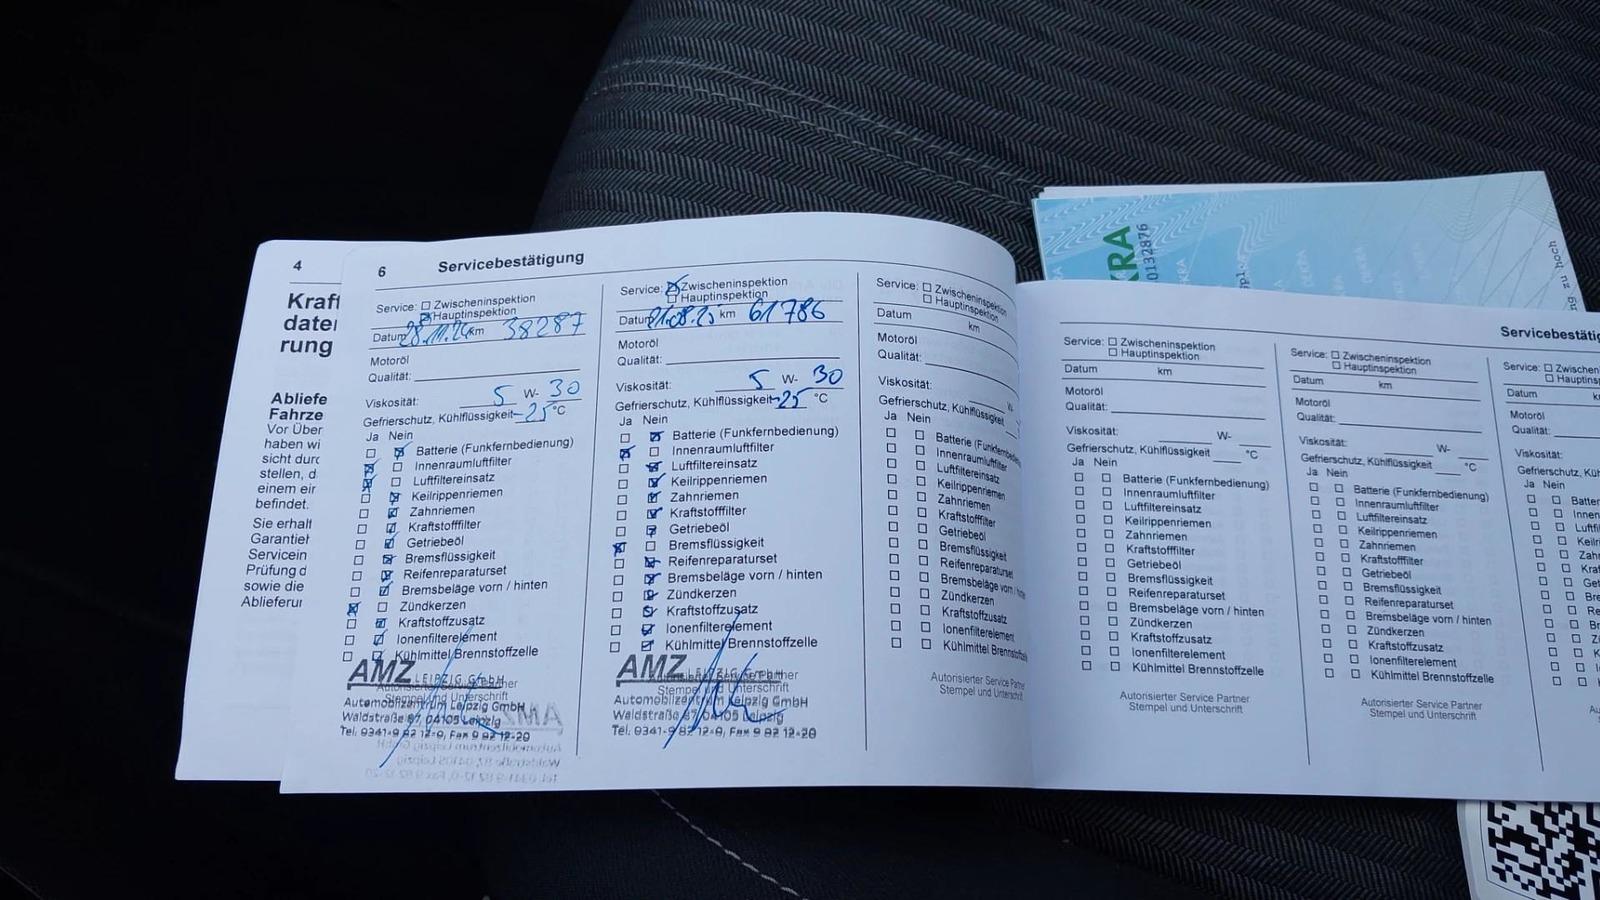 4
Kraft
daten
rung
Abliefe
Fahrze
Vor Über
haben wi
sicht durc
stellen, d
einem ein
befindet.
Sie erhalt
Garantieh
Servicein
Prüfung d
sowie die
Ablieferun
6 Servicebestätigung
Service: ☐ Zwischeninspektion
☒ Hauptinspektion
Datum 28.11.24 km 38287
Motoröl
Qualität:
Viskosität: 5 W- 30
Gefrierschutz, Kühlflüssigkeit -25 °C
Ja Nein
☐ ☒ Batterie (Funkfernbedienung)
☒ ☐ Innenraumluftfilter
☒ ☐ Luftfiltereinsatz
☐ ☒ Keilrippenriemen
☐ ☒ Zahnriemen
☐ ☒ Kraftstofffilter
☐ ☒ Getriebeöl
☐ ☒ Bremsflüssigkeit
☐ ☒ Reifenreparaturset
☐ ☒ Bremsbeläge vorn / hinten
☒ ☐ Zündkerzen
☐ ☒ Kraftstoffzusatz
☐ ☒ Ionenfilterelement
☐ ☒ Kühlmittel Brennstoffzelle
AMZ LEIPZIG GmbH
Autorisierter Service Partner
Stempel und Unterschrift
Automobilzentrum Leipzig GmbH
Waldstraße 87, 04105 Leipzig
Tel. 0341-9 82 12-0, Fax 9 82 12-20
Service: ☒ Zwischeninspektion
☐ Hauptinspektion
Datum 21.08.25 km 61786
Motoröl
Qualität:
Viskosität: 5 W- 30
Gefrierschutz, Kühlflüssigkeit -25 °C
Ja Nein
☐ ☒ Batterie (Funkfernbedienung)
☒ ☐ Innenraumluftfilter
☐ ☒ Luftfiltereinsatz
☐ ☒ Keilrippenriemen
☐ ☒ Zahnriemen
☐ ☒ Kraftstofffilter
☐ ☒ Getriebeöl
☒ ☐ Bremsflüssigkeit
☐ ☒ Reifenreparaturset
☐ ☒ Bremsbeläge vorn / hinten
☐ ☒ Zündkerzen
☐ ☒ Kraftstoffzusatz
☐ ☒ Ionenfilterelement
☐ ☒ Kühlmittel Brennstoffzelle
AMZ LEIPZIG GmbH
Autorisierter Service Partner
Stempel und Unterschrift
Automobilzentrum Leipzig GmbH
Waldstraße 87, 04105 Leipzig
Tel. 0341-9 82 12-0, Fax 9 82 12-20
Service: ☐ Zwischeninspektion
☐ Hauptinspektion
Datum km
Motoröl
Qualität:
Viskosität: W-
Gefrierschutz, Kühlflüssigkeit
Ja Nein
☐ ☐ Batterie (Funkfernbedie
☐ ☐ Innenraumluftfilter
☐ ☐ Luftfiltereinsatz
☐ ☐ Keilrippenriemen
☐ ☐ Zahnriemen
☐ ☐ Kraftstofffilter
☐ ☐ Getriebeöl
☐ ☐ Bremsflüssigkeit
☐ ☐ Reifenreparaturset
☐ ☐ Bremsbeläge vorn / hinten
☐ ☐ Zündkerzen
☐ ☐ Kraftstoffzusatz
☐ ☐ Ionenfilterelement
☐ ☐ Kühlmittel Brennstoffzelle
Autorisierter Service Partner
Stempel und Unterschrift
Servicebestätig
Service: ☐ Zwischeninspektion
☐ Hauptinspektion
Datum km
Motoröl
Qualität:
Viskosität: W-
Gefrierschutz, Kühlflüssigkeit °C
Ja Nein
☐ ☐ Batterie (Funkfernbedienung)
☐ ☐ Innenraumluftfilter
☐ ☐ Luftfiltereinsatz
☐ ☐ Keilrippenriemen
☐ ☐ Zahnriemen
☐ ☐ Kraftstofffilter
☐ ☐ Getriebeöl
☐ ☐ Bremsflüssigkeit
☐ ☐ Reifenreparaturset
☐ ☐ Bremsbeläge vorn / hinten
☐ ☐ Zündkerzen
☐ ☐ Kraftstoffzusatz
☐ ☐ Ionenfilterelement
☐ ☐ Kühlmittel Brennstoffzelle
Autorisierter Service Partner
Stempel und Unterschrift
Service: ☐ Zwischeninspektion
☐ Hauptinspektion
Datum km
Motoröl
Qualität:
Viskosität: W-
Gefrierschutz, Kühlflüssigkeit °C
Ja Nein
☐ ☐ Batterie (Funkfernbedienung)
☐ ☐ Innenraumluftfilter
☐ ☐ Luftfiltereinsatz
☐ ☐ Keilrippenriemen
☐ ☐ Zahnriemen
☐ ☐ Kraftstofffilter
☐ ☐ Getriebeöl
☐ ☐ Bremsflüssigkeit
☐ ☐ Reifenreparaturset
☐ ☐ Bremsbeläge vorn / hinten
☐ ☐ Zündkerzen
☐ ☐ Kraftstoffzusatz
☐ ☐ Ionenfilterelement
☐ ☐ Kühlmittel Brennstoffzelle
Autorisierter Service Partner
Stempel und Unterschrift
Service: ☐ Zwischen
☐ Hauptins
Datum
Motoröl
Qualität:
Viskosität:
Gefrierschutz, Küh
Ja Nein
KRA
0132876
zu hoch